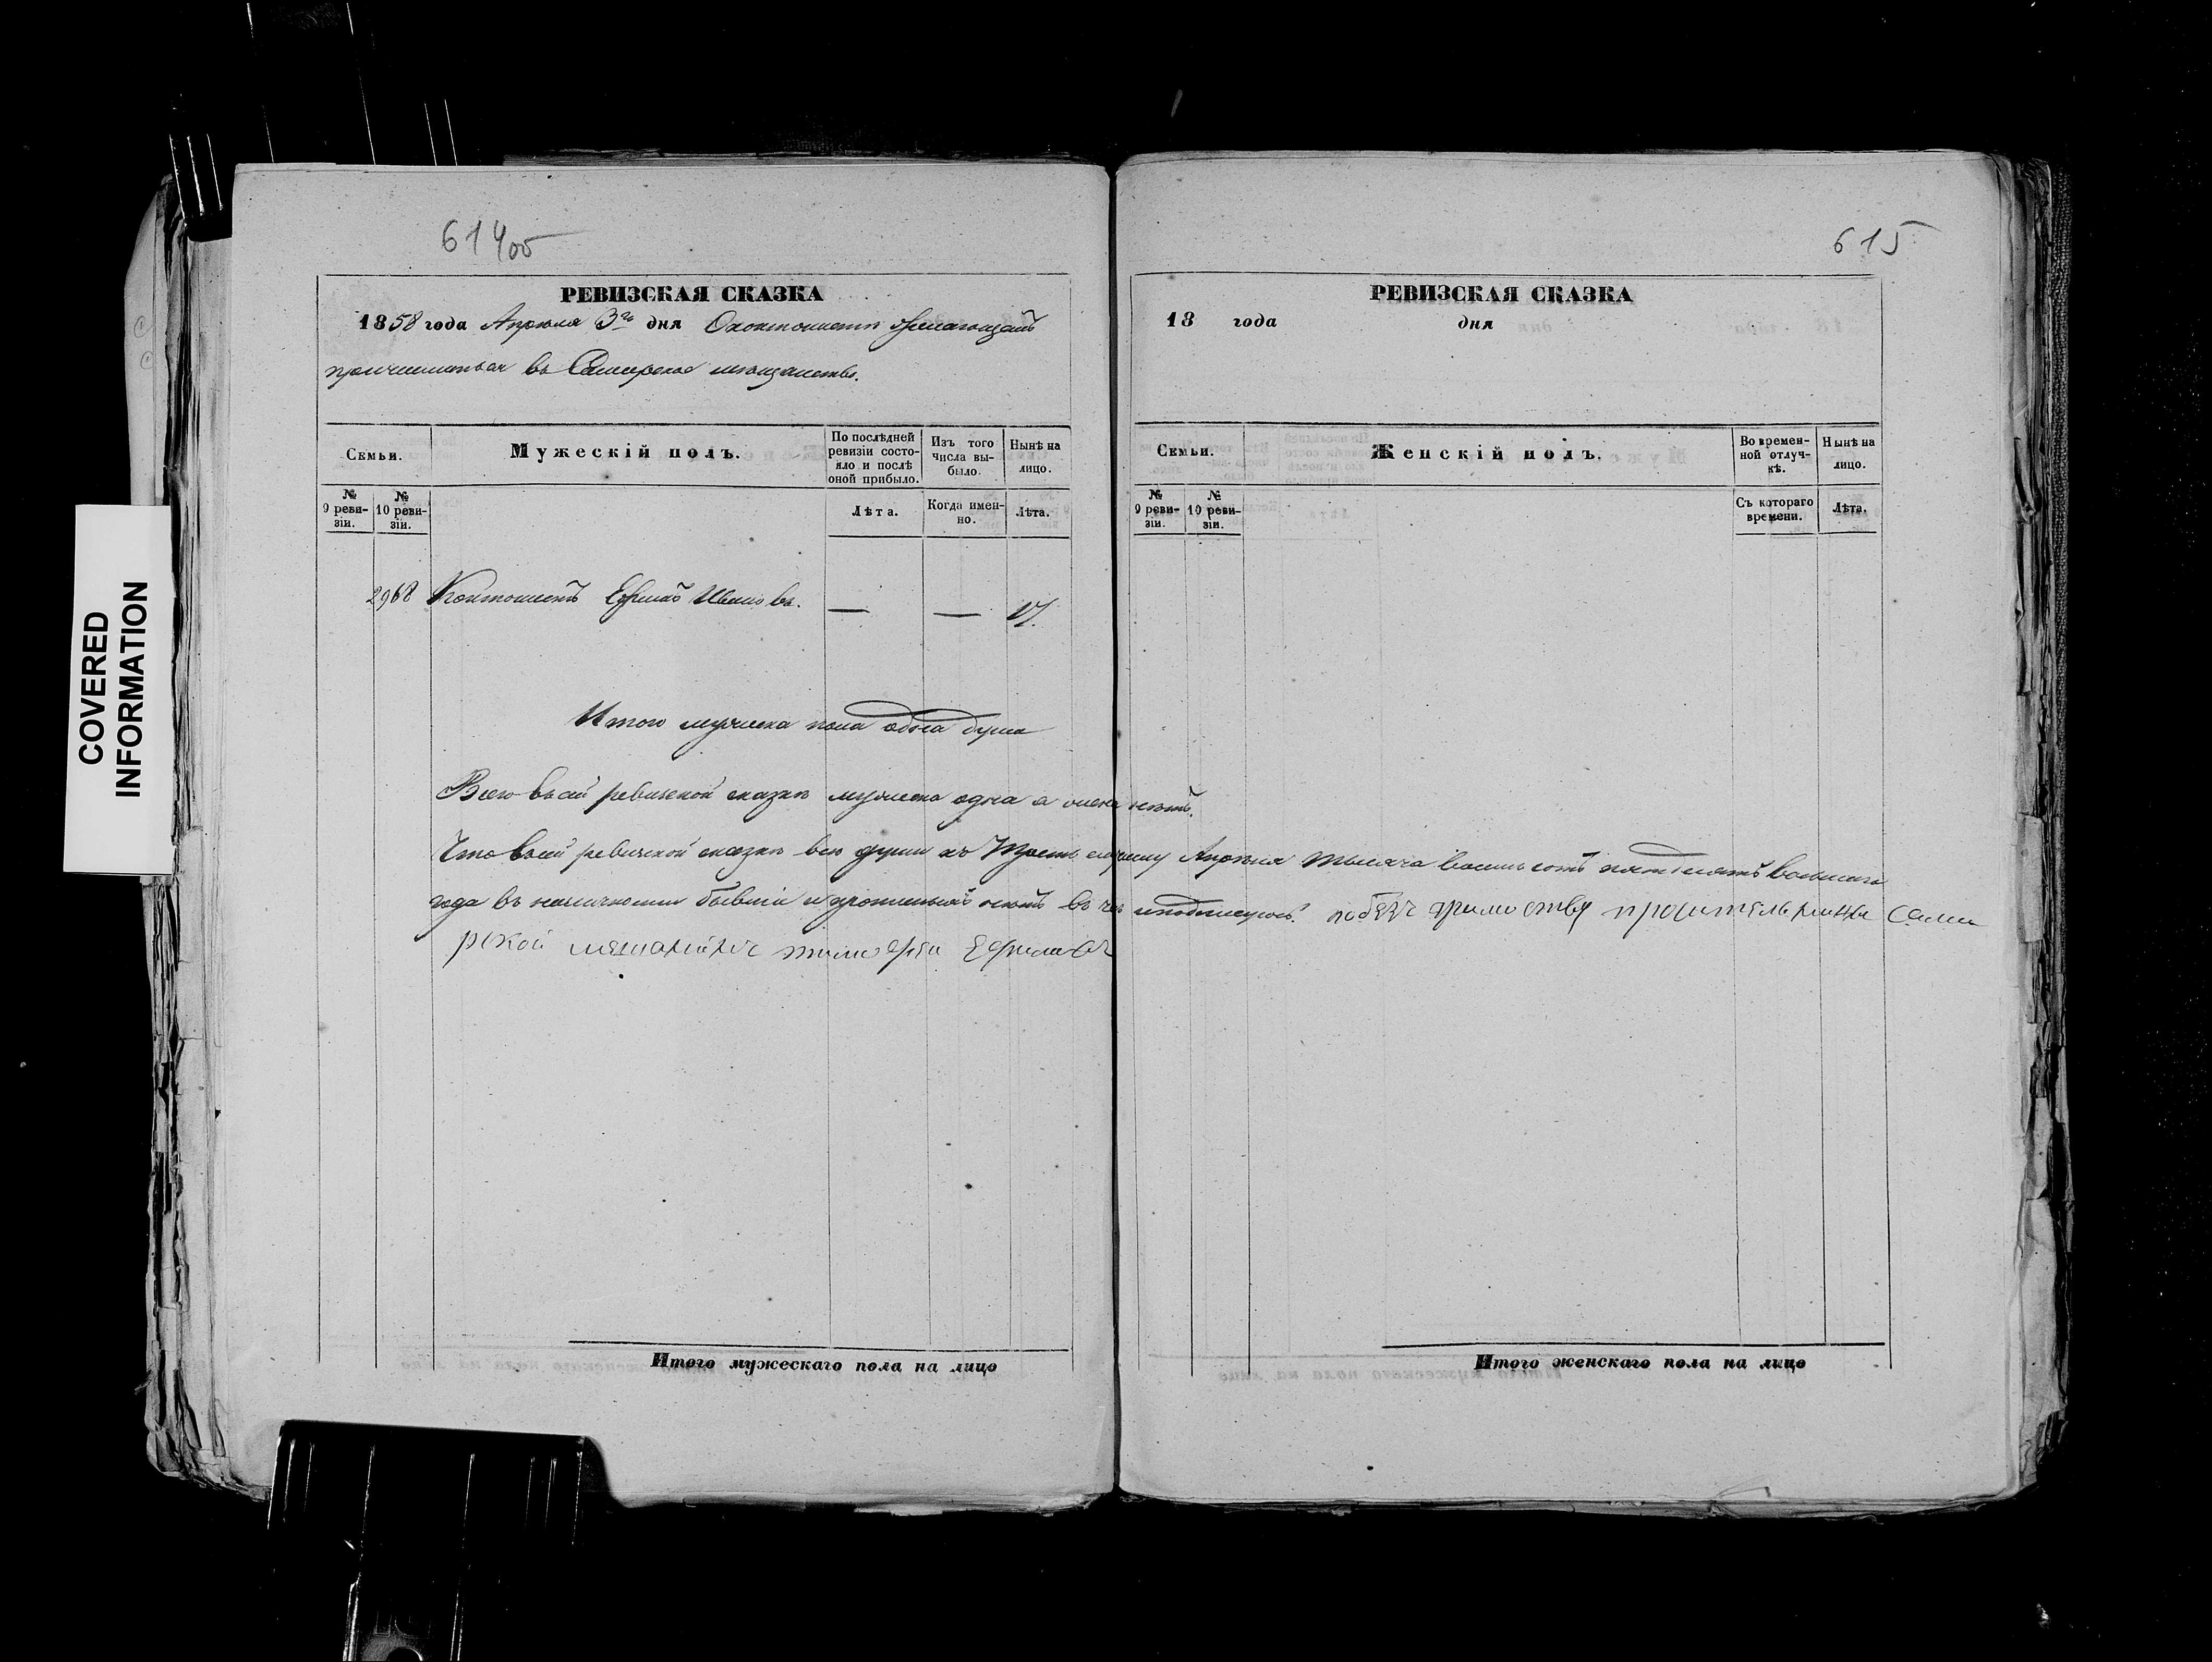 COVERED
INFORMATION
614об
РЕВИЗСКАЯ СКАЗКА
1858 года Апрѣля 3го дня О контонистѣ желающемъ
причислиться въ Самарское мѣщанство.
Семьи.
Мужескій полъ.
По послѣдней ревизіи состояло и послѣ оной прибыло.
Изъ того числа выбыло.
Нынѣ на лицо.
№ 9 ревизіи.
№ 10 ревизіи.
Лѣта.
Когда именно.
Лѣта.
2968 Контонистъ Ефимъ Ивановъ. — — 17.
Итого мужеска пола одна душа
Всего въ сей ревизской сказкѣ мужеска одна а женска нѣтъ.
Что въ сей ревизской сказкѣ всѣ души къ третьему числу Апрѣля тысяча восемь сотъ пятьдесятъ восьмаго
года въ наличности бывшіе и прописныхъ нѣтъ въ чемъ и подписуюсь.
Самарской мещанинъ Ефимовъ
Итого мужескаго пола на лицо
615
РЕВИЗСКАЯ СКАЗКА
18 года дня
Семьи.
Женскій полъ.
Во временной отлучкѣ.
Нынѣ на лицо.
№ 9 ревизіи.
№ 10 ревизіи.
Съ котораго времени.
Лѣта.
Итого женскаго пола на лицо